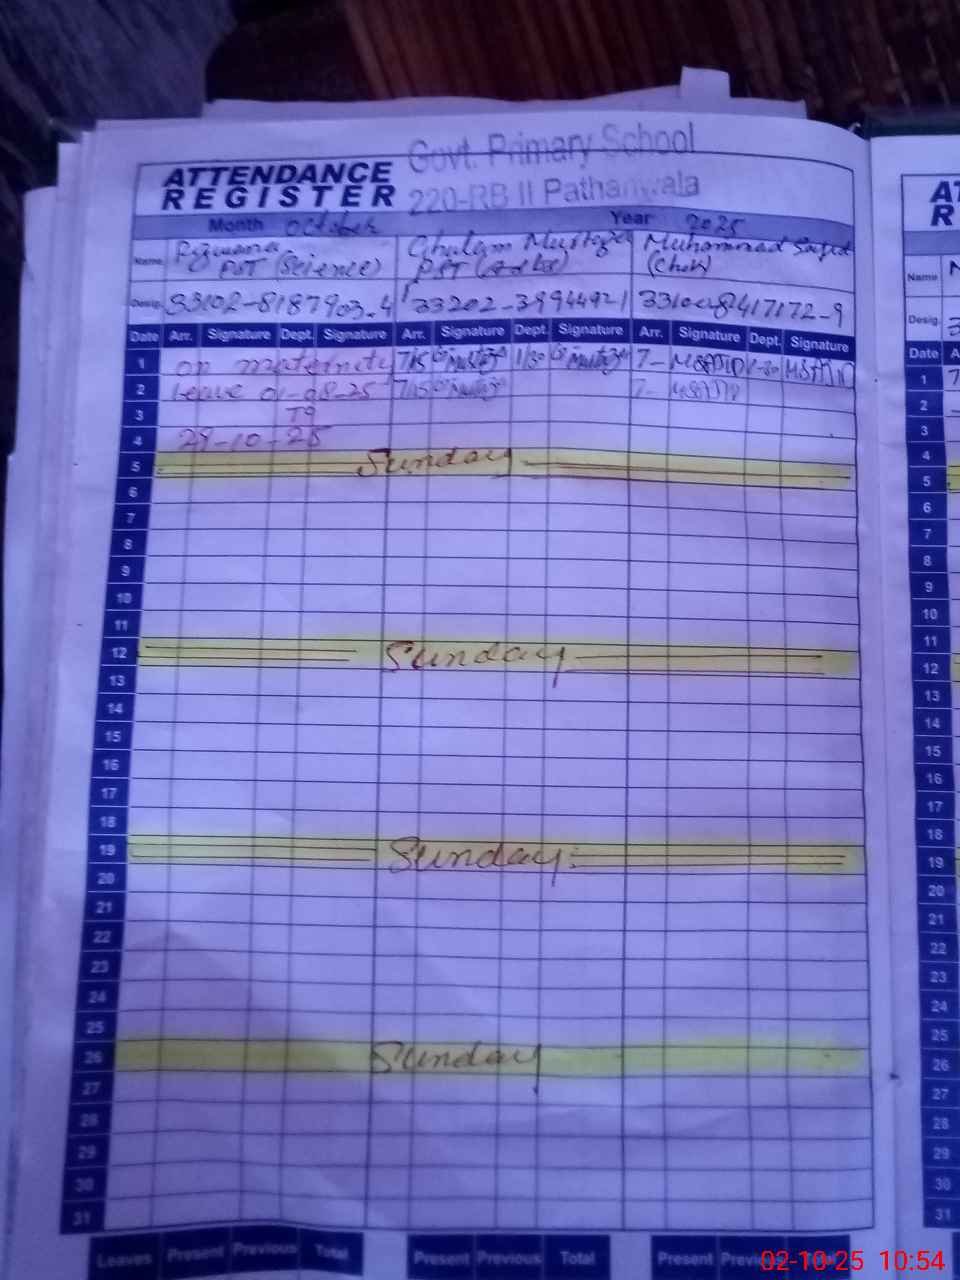 Govt. Primary School
ATTENDANCE
REGISTER
220-RB II Pathanwala
Month October Year 2025
Name Rizwana Ghulam Mustafa Muhammad Sajid
PST (Science) PST (
Desig. 33102-8187903-4 33202-3994492-1
Date Arr. Signature Dept. Signature Arr. Signature Dept. Signature Arr. Signature Dept. Signature
1 on maternity 7/15 Mustafa 1/30 Mustafa 7- MSAJID
2 Leave 01-08-25 7/15 Mustafa 7- MSAJID
3 To
4 29-10-25
5 Sunday
6
7
8
9
10
11
12 Sunday
13
14
15
16
17
18
19 Sunday
20
21
22
23
24
25
26 Sunday
27
28
29
30
31
Leaves Present Previous Total Present Previous Total Present
Name
Desig.
Date
1
2
3
4
5
6
7
8
9
10
11
12
13
14
15
16
17
18
19
20
21
22
23
24
25
26
27
28
29
30
31
02-10-25 10:54